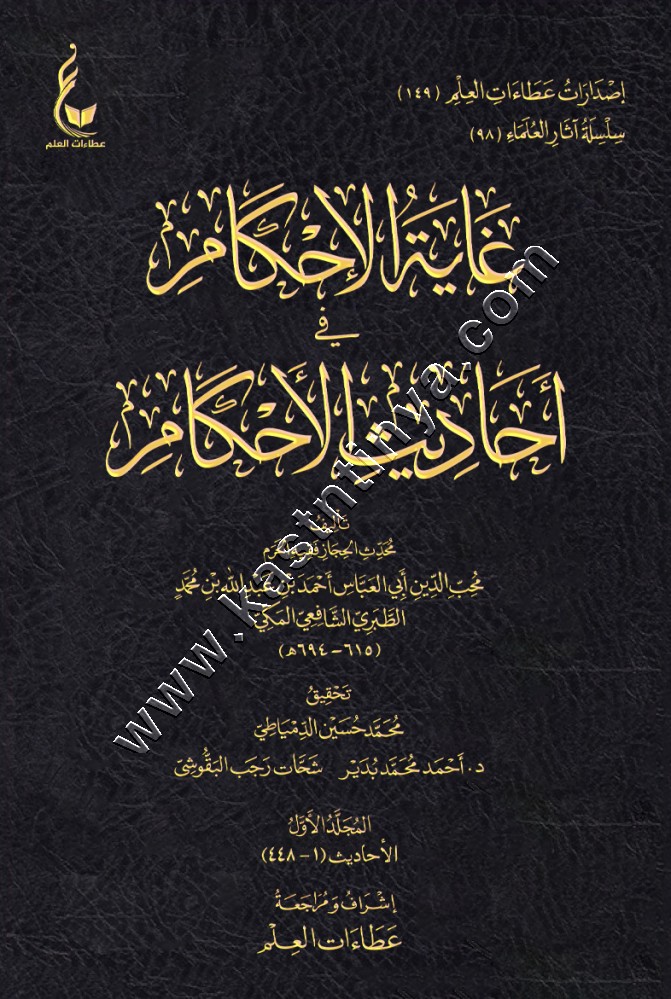 عطاءات العلم
إِصْدَارَاتُ عَطَاءَاتِ العِلْمِ (١٤٩)
سِلْسِلَةُ آثَارِ العُلَمَاءِ (٩٨)
غَايَةُ الإِحْكَامِ
فِي
أَحَادِيثِ الأَحْكَامِ
تَأْلِيفُ
مُحَدِّثِ الحِجَازِ فَقِيهِ الحَرَمِ
مُحِبِّ الدِّينِ أَبِي العَبَّاسِ أَحْمَدَ بْنِ عَبْدِ اللهِ بْنِ مُحَمَّدٍ
الطَّبَرِيِّ الشَّافِعِيِّ المَكِّيِّ
(٦١٥ - ٦٩٤هـ)
تَحْقِيقُ
مُحَمَّد حُسَيْن الدِّمْيَاطِيّ
د. أَحْمَد مُحَمَّد بُدَيْر شَحَّات رَجَب البَقُّوشِيّ
المُجَلَّدُ الأَوَّلُ
الأحاديث (١ - ٤٤٨)
إِشْرَافُ وَمُرَاجَعَةُ
عَطَاءَاتِ العِلْمِ
www.kastntinya.com